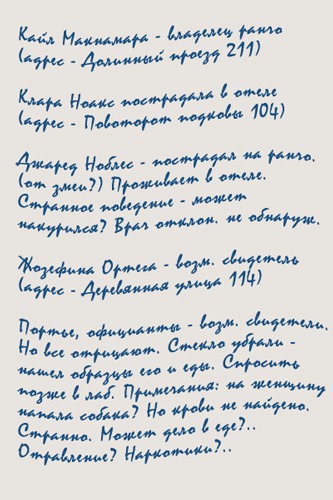 Кайл Макнамара - владелец ранчо
(адрес - Долинный проезд 211)
Клара Ноакс пострадала в отеле
(адрес - Повоторот подковы 104)
Джаред Ноблес - пострадал на ранчо.
(от змеи?) Проживает в отеле.
Странное поведение - может
накурился? Врач отклон. не обнаруж.
Жозефина Ортега - возм. свидетель
(адрес - Деревянная улица 114)
Портье, официанты - возм. свидетели.
Но все отрицают. Стекло убрали -
нашел образцы его и еды. Спросить
позже в лаб. Примечания: на женщину
напала собака? Но крови не найдено.
Странно. Может дело в еде?..
Отравление? Наркотики?..